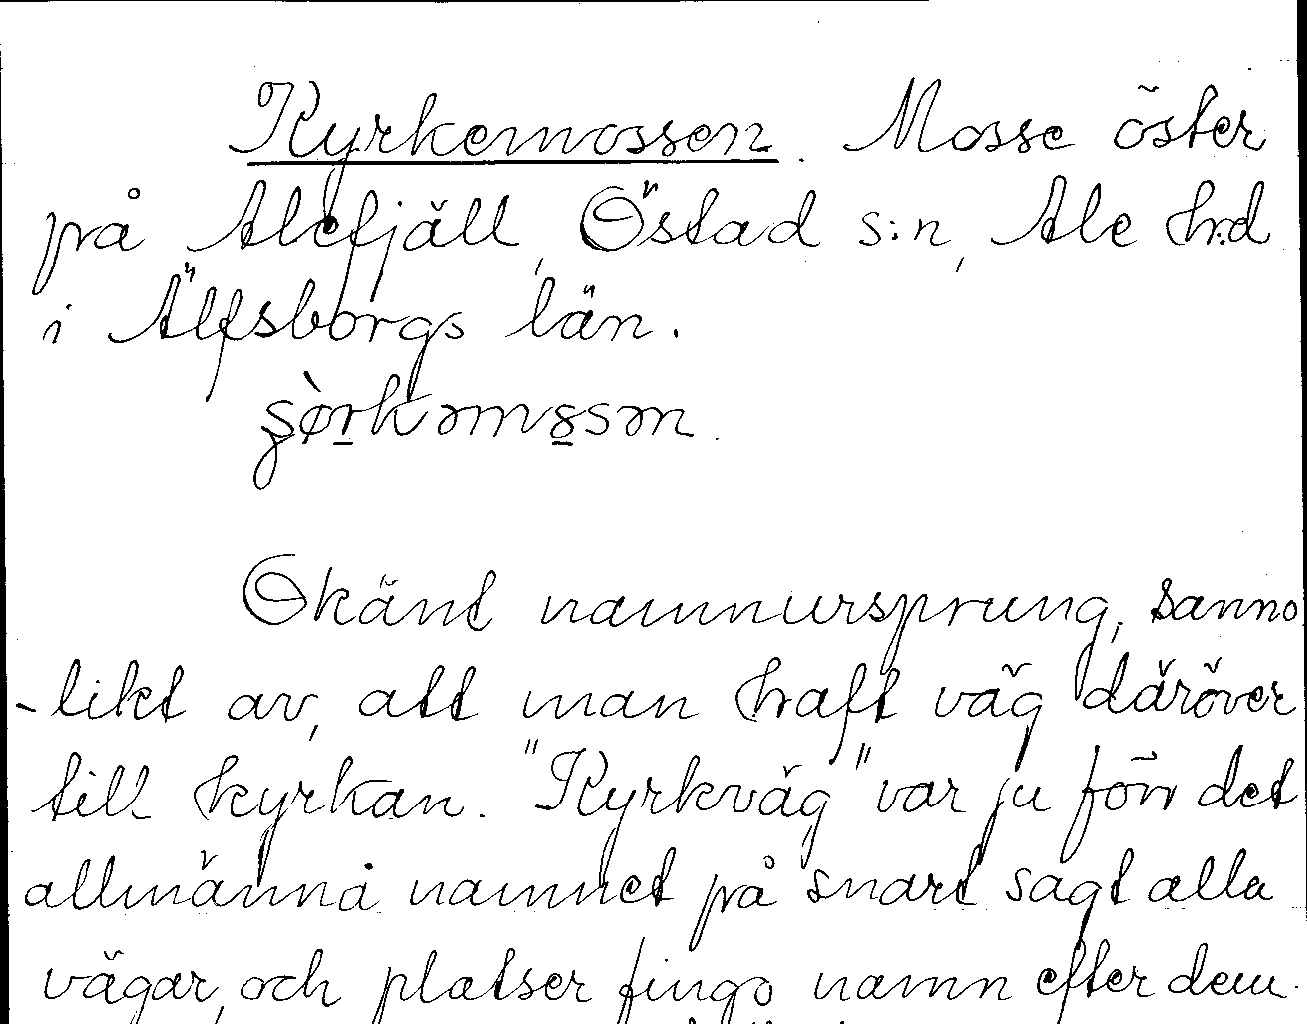 Kyrkemossen. Mosse öster
på Alefjäll, Östad s:n, Ale h:d
i Älfsborgs län.
Okänt namnursprung, sanno
-likt av, att man haft väg däröver
till kyrkan. "Kyrkväg" var ju förr det
allmänna namnet på snart sagt alla
vägar, och platser fingo namn efter dem.